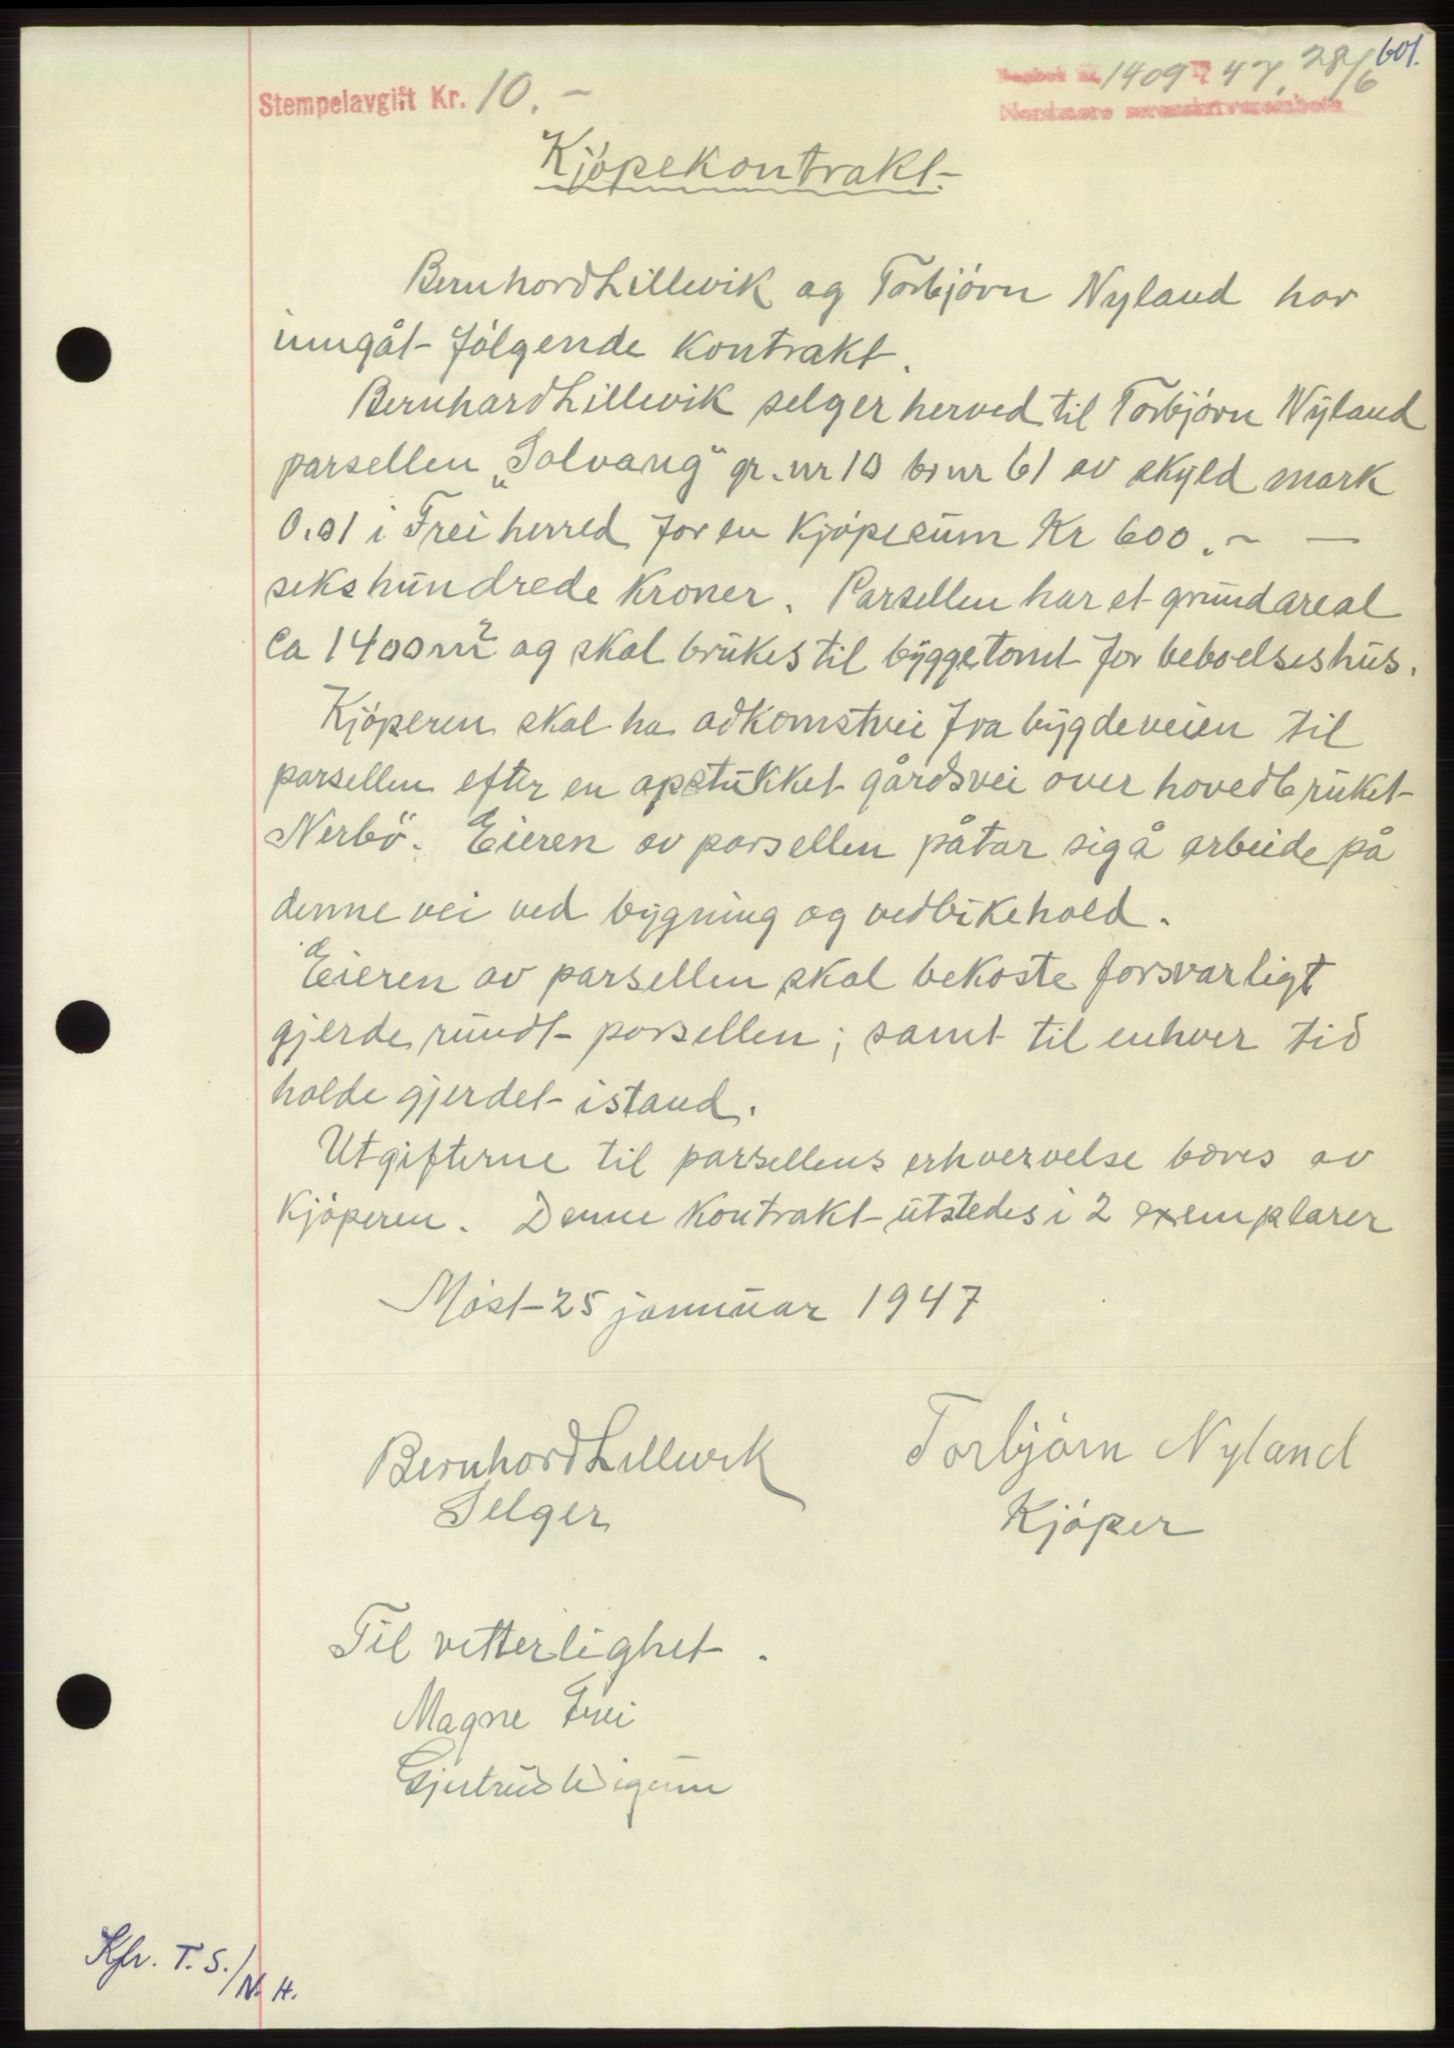 601.
Stempelavgift Kr. 10.-
Dagbok nr. 1409 19 47, 28/6
Nordmøre sorenskriverembete
Kjöpekontrakt.-
Bernhard Lillevik og Torbjörn Nyland har
inngåt fölgende kontrakt.
Bernhard Lillevik selger herved til Torbjörn Nyland
parsellen „Solvang" gr.nr 10 br nr 61 av skyld mark
0.01 i Frei herred for en Kjöpesum Kr 600.- —
sekshundrede Kroner. Parsellen har et grundareal
Ca 1400m² og skal brukes til byggetomt for beboelseshus.
Kjöperen skal ha adkomstvei fra bygdeveien til
parsellen efter en opstukket gårdsvei over hovedbruket
Nerbö. Eieren av parsellen påtar sig å arbeide på
denne vei ved bygning og vedlikehold.
Eieren av parsellen skal bekoste forsvarligt
gjerde rundt parsellen; samt til enhver tid
holde gjerdet istand.
Utgifterne til parsellens erhvervelse bæres av
Kjöperen. Denne Kontrakt utstedes i 2 exemplarer
Möst 25 januar 1947
Bernhard Lillevik Torbjörn Nyland
Selger Kjöper
Til vitterlighet.
Magne Frei
Gjertrud Wigum
Kfr. T. S./N. H.